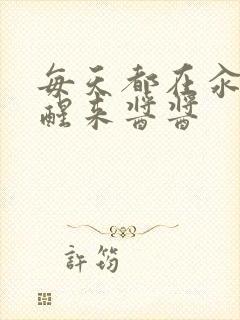 每天都在汆
醒来酱酱
許筠